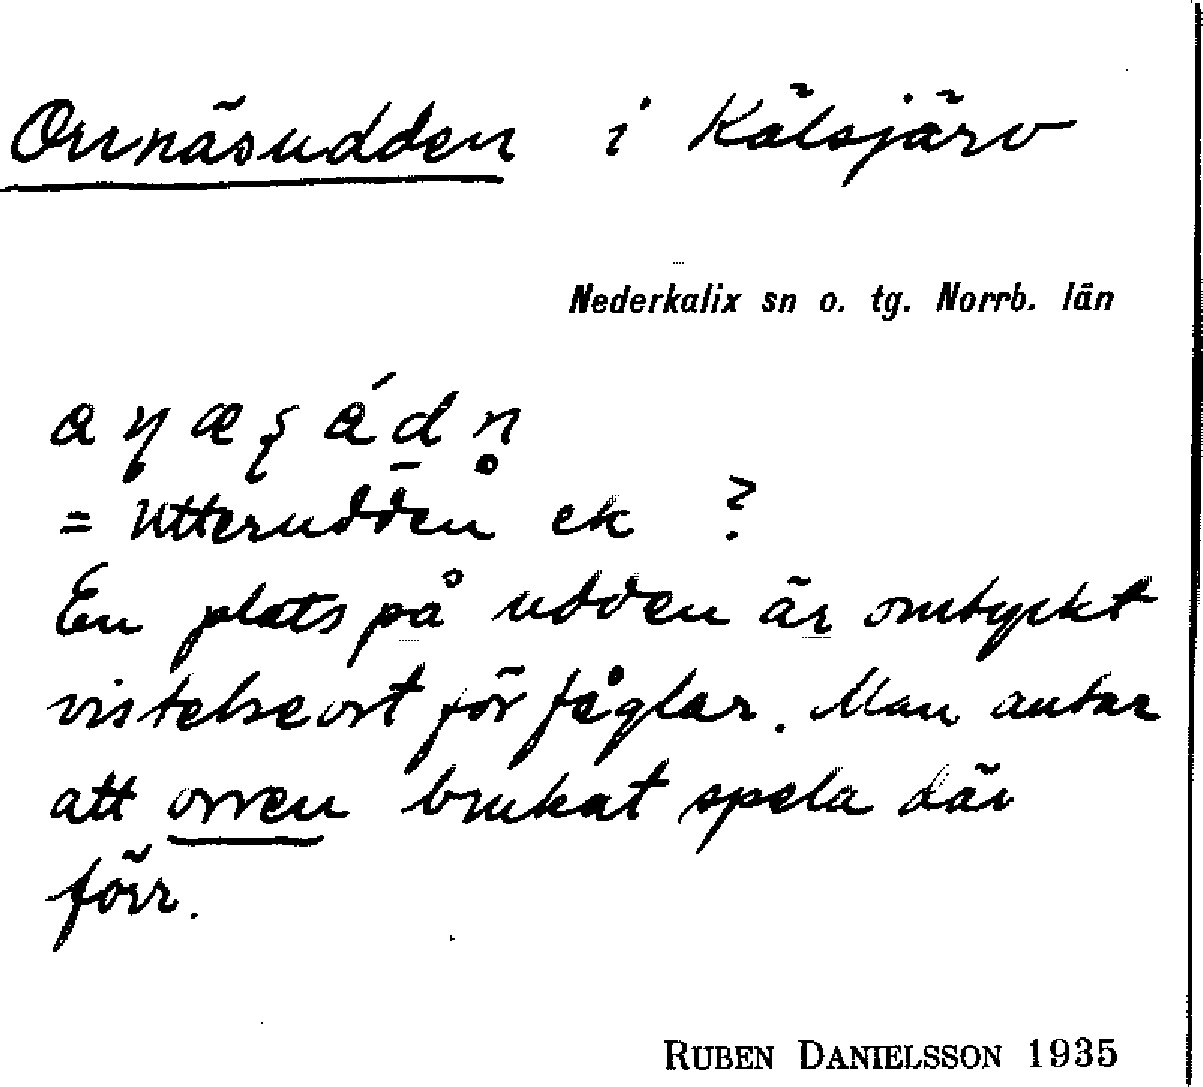 Orrnäsudden i Kälsjärv
Nederkalix sn o. tg. Norrb. län
= Utterudden ek ?
En plats på udden är omtyckt
vistelseort för fåglar. Man antar
att orren brukat spela där
förr.
RUBEN DANIELSSON 1935